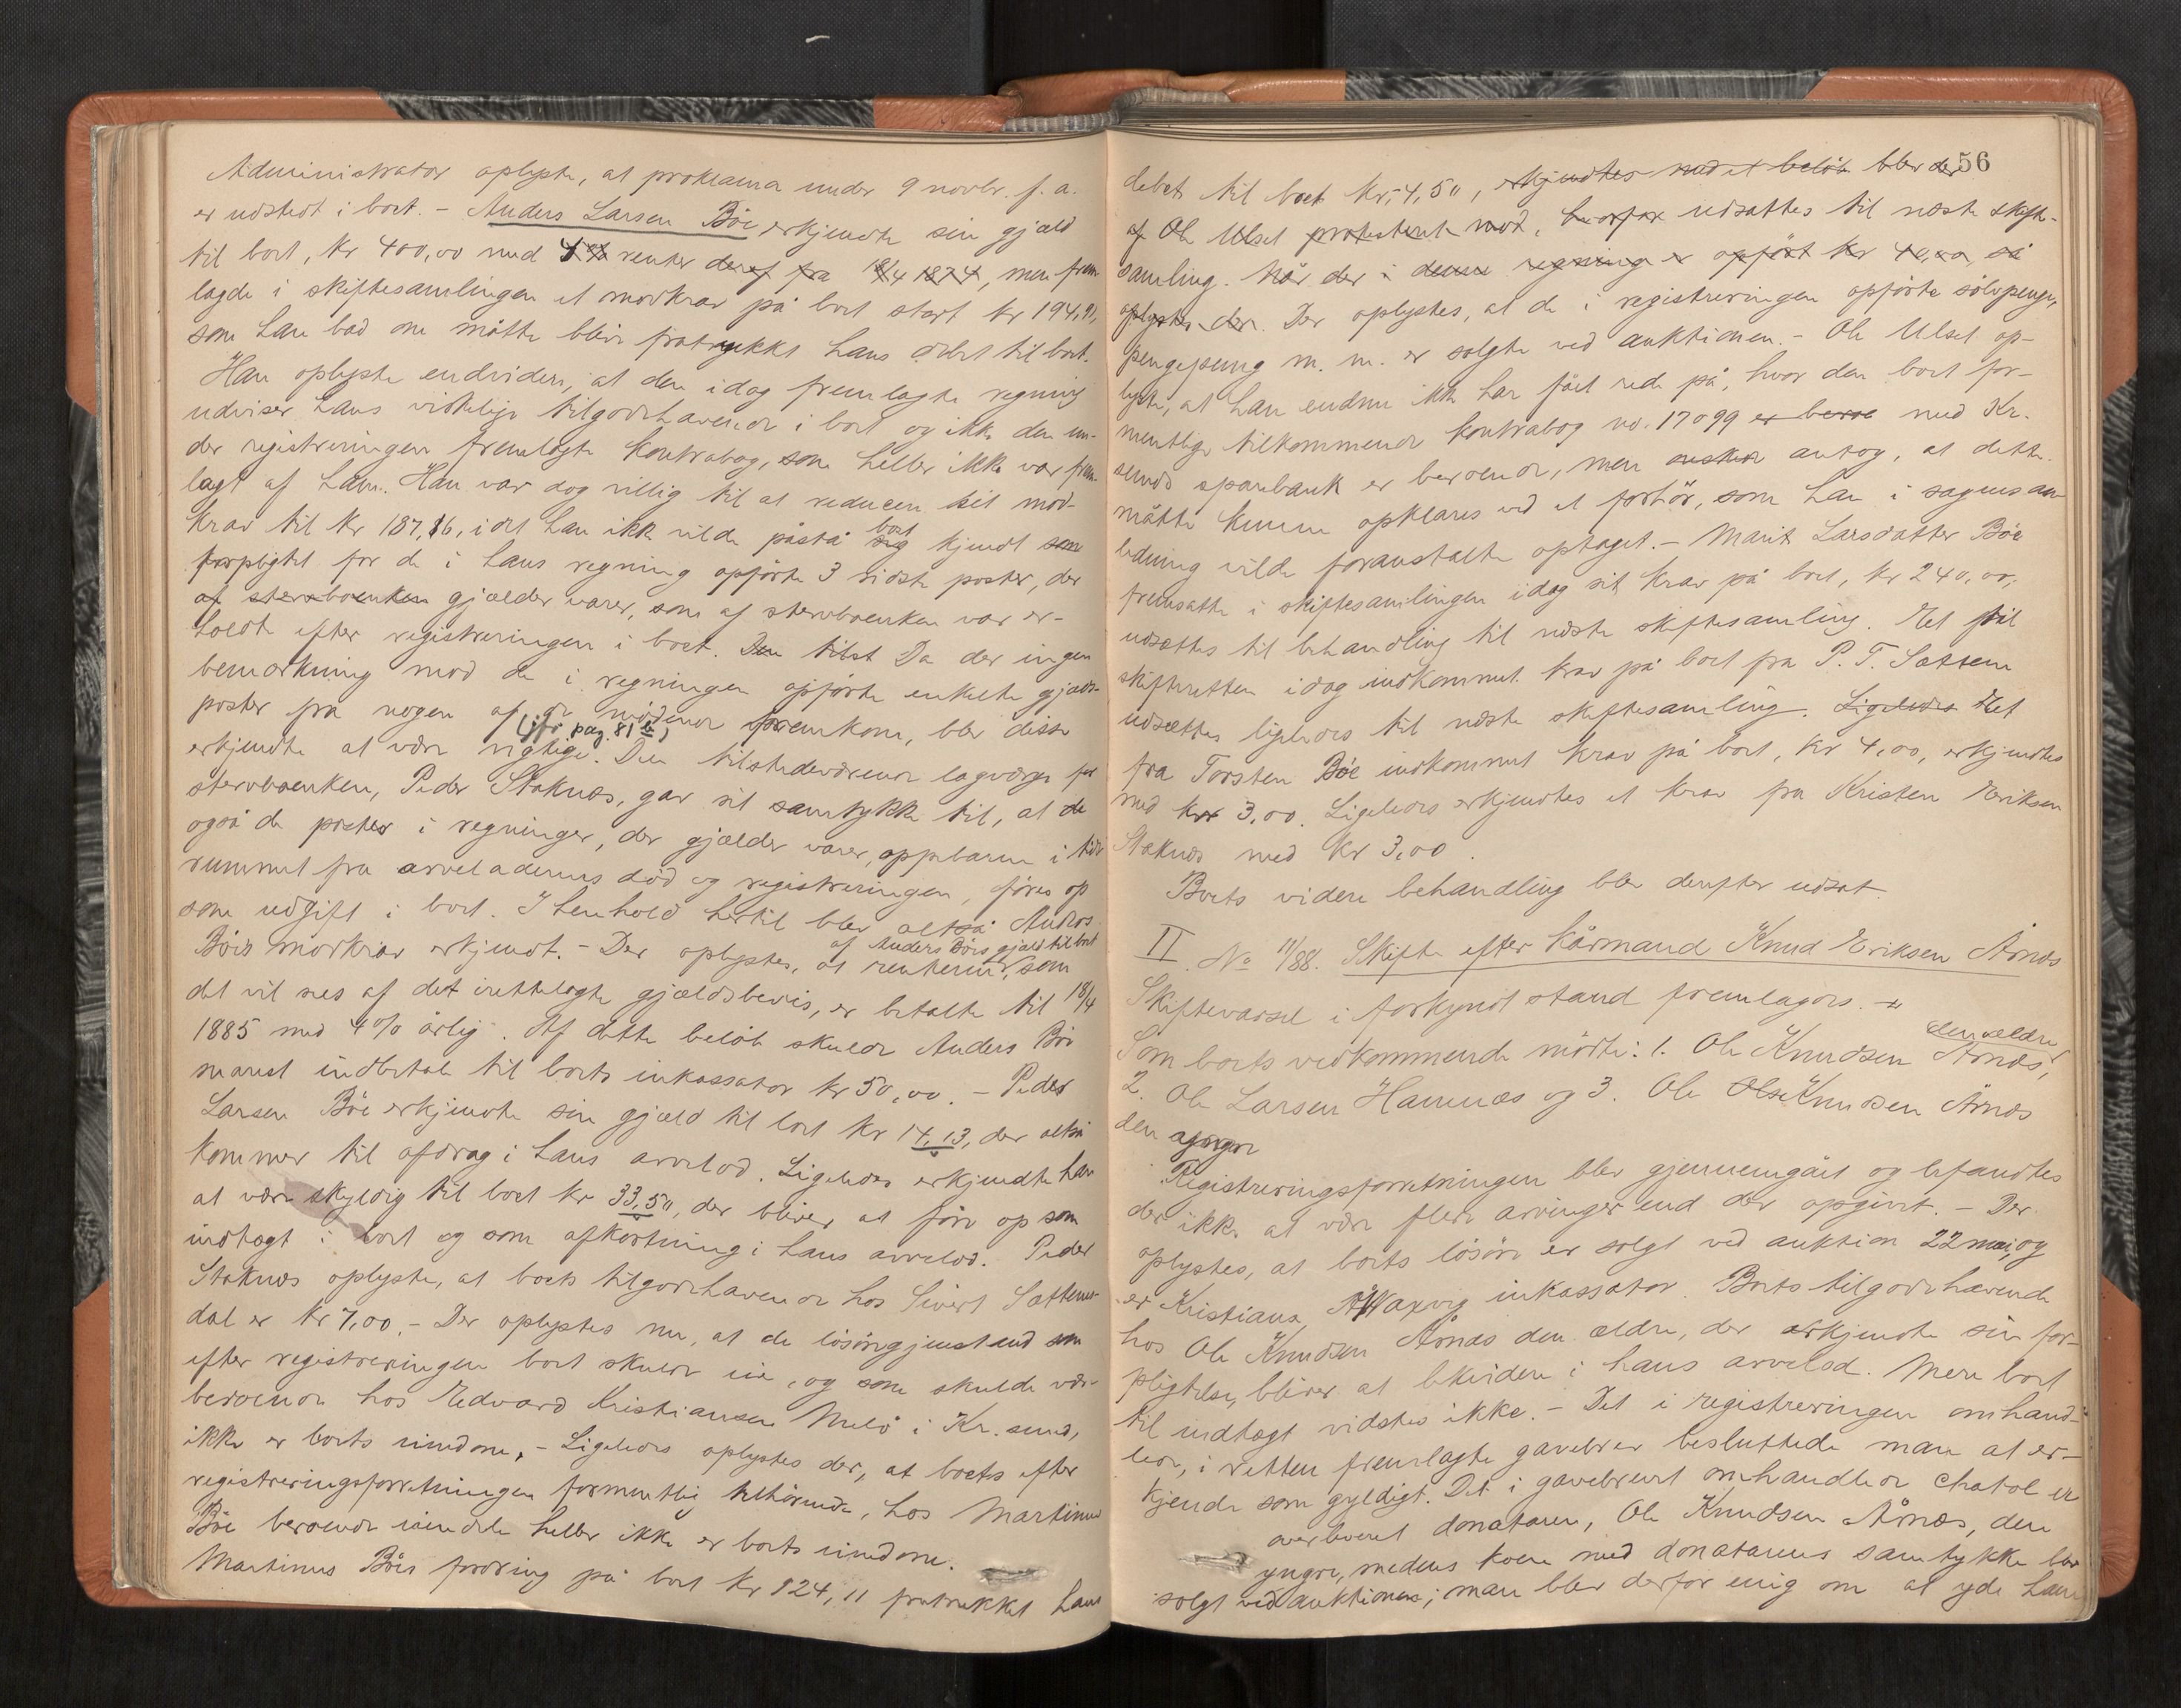 Administrator oplyste, at proklama under 9 novbr. f. a.
er udstedt i boet. - Anders Larsen Böe erkjendte sin gjæld
til boet, kr 400,00 med 4 % renter deraf fra 18/4 1874, men frem-
lagde i skiftesamlingen et modkrav på boet stort kr 194,91,
som han bad om måtte blive fratrykket hans debet til boet.
Han oplyste endvidere, at den idag fremlagte regning
udviser hans virkelige tilgodehavende i boet og ikke den un-
der registreringen fremlagte kontrabog, som heller ikke var frem-
lagt af ham. Han var dog villig til at reducere sit mod-
krav til kr 187,16, idet han ikke vilde påstå sig boet kjendt som
forpligtet for de i hans regning opførte 3 sidste poster, der
af stervboenken gjælder varer, som af stervboenken var er-
holdte efter registreringen i boet. Den tilst Da der ingen
bemærkning mod de i regningen opførte enkelte gjælds-
poster fra nogen af de mødende fremkom, blev disse
(jfr. pag. 81 b)
erkjendte at være rigtige. Den tilstedeværende lagværge for
stervboenken, Peder Staknæs, gav sit samtykke til, at de
også de poster i regninger, der gjælder varer, oppebarne i tids-
rummet fra arveladerens död og registreringen, føres op
som udgift i boet. I henhold hertil blev altså Anders
Böes modkrav erkjendt. - Der oplystes, at renterne af Anders Böes gjæld til boet, som
det vil sees af det irettelagte gjældsbevis, er betalte til 18/4
1885 med 4% årlig. Af dette beløb skulde Anders Böe
snarest indbetale til boets inkassator kr 50,00. - Peder
Larsen Böe erkjendte sin gjæld til boet kr 14,13, der altså
kommer til afdrag i hans arvelod. Ligeledes erkjendte han
at være skyldig til boet kr 33,50, der bliver at føre op som
indtægt i boet og som afkortning i hans arvelod. Peder
Staknæs oplyste, at boets tilgodehavende hos Sivert Sættem-
dal er kr 7,00. - Der oplystes nu, at de lösöregjenstand som
efter registreringen boet skulde eie, og som skulde være
beroende hos Edvard Kristiansen Melö i Kr.sund,
ikke er boets eiendom. - Ligeledes oplystes der, at boets efter
registreringsforretningen formentlig tilhörende, hos Martinus
Böe beroende eiendele heller ikke er boets eiendom.
Martinus Böes fordring på boet kr 124,11 fratrukket hans
56
debet til boet kr. 4,50, erkjendtes med et beløb blev der
af Ole Ulset protesteret mod, hvorfor udsattes til næste skifte-
samling. Når der i denne regning er opført kr 40,00, så
oplystes der. Der oplystes, at de i registreringen opførte sölvpenge,
pengepung m. m. er solgte ved auktionen. - Ole Ulset op-
lyste, at han endnu ikke har fået rede på, hvor den boet for-
mentlig tilkommende kontrabog no. 17099 er beroe med Kr.
sunds sparebank er beroende, men ønsker antog, at dette
måtte kunne opklares ved et forhör, som han i sagens an-
ledning vilde foranstalte optaget. - Marit Larsdatter Böe
fremsatte i skiftesamlingen idag sit krav på boet, kr 240,00,
udsættes til behandling til næste skiftesamling. Et til
skifteretten idag indkommet krav på boet fra P. T. Sættem
udsættes ligeledes til næste skiftesamling. Ligeledes Et
fra Torsten Böe indkommet krav på boet, kr 4,00, erkjendtes
med kr 3,00. Ligeledes erkjendtes et krav fra Kristen Eriksen
Staknæs med kr 3,00.
Boets videre behandling blev derefter udsat.
II. No 11/88. Skifte efter kårmand Knud Eriksen Årnæs
Skiftevarsel i forkyndt stand fremlagdes. -
Som boets vedkommende mödte: 1. Ole Knudsen Årnæs, den ældre,
2. Ole Larsen Hamnæs og 3. Ole Olse Knudsen Årnæs
den yngre
Registreringsforretningen blev gjennemgået og befandtes
der ikke at være flere arvinger end der opgivet. - Der
oplystes, at boets lösöre er solgt ved auktion 22 mai, og
er Kristians Waxvig inkassator. Boets tilgodehavende
hos Ole Knudsen Årnæs den ældre, der erkjendte sin for-
pligtelse, bliver at likvidere i hans arvelod. Mere boet
til indtægt vidstes ikke. - Det i registreringen omhand-
lede, i retten fremlagte gavebrev besluttede man at er-
kjende som gyldigt. Det i gavebrevet omhandlede chatol er
overleveret donataren, Ole Knudsen Årnæs, den
yngre, medens koen med donatarens samtykke blev
solgt ved auktionen; man blev derfor enig om at yde ham